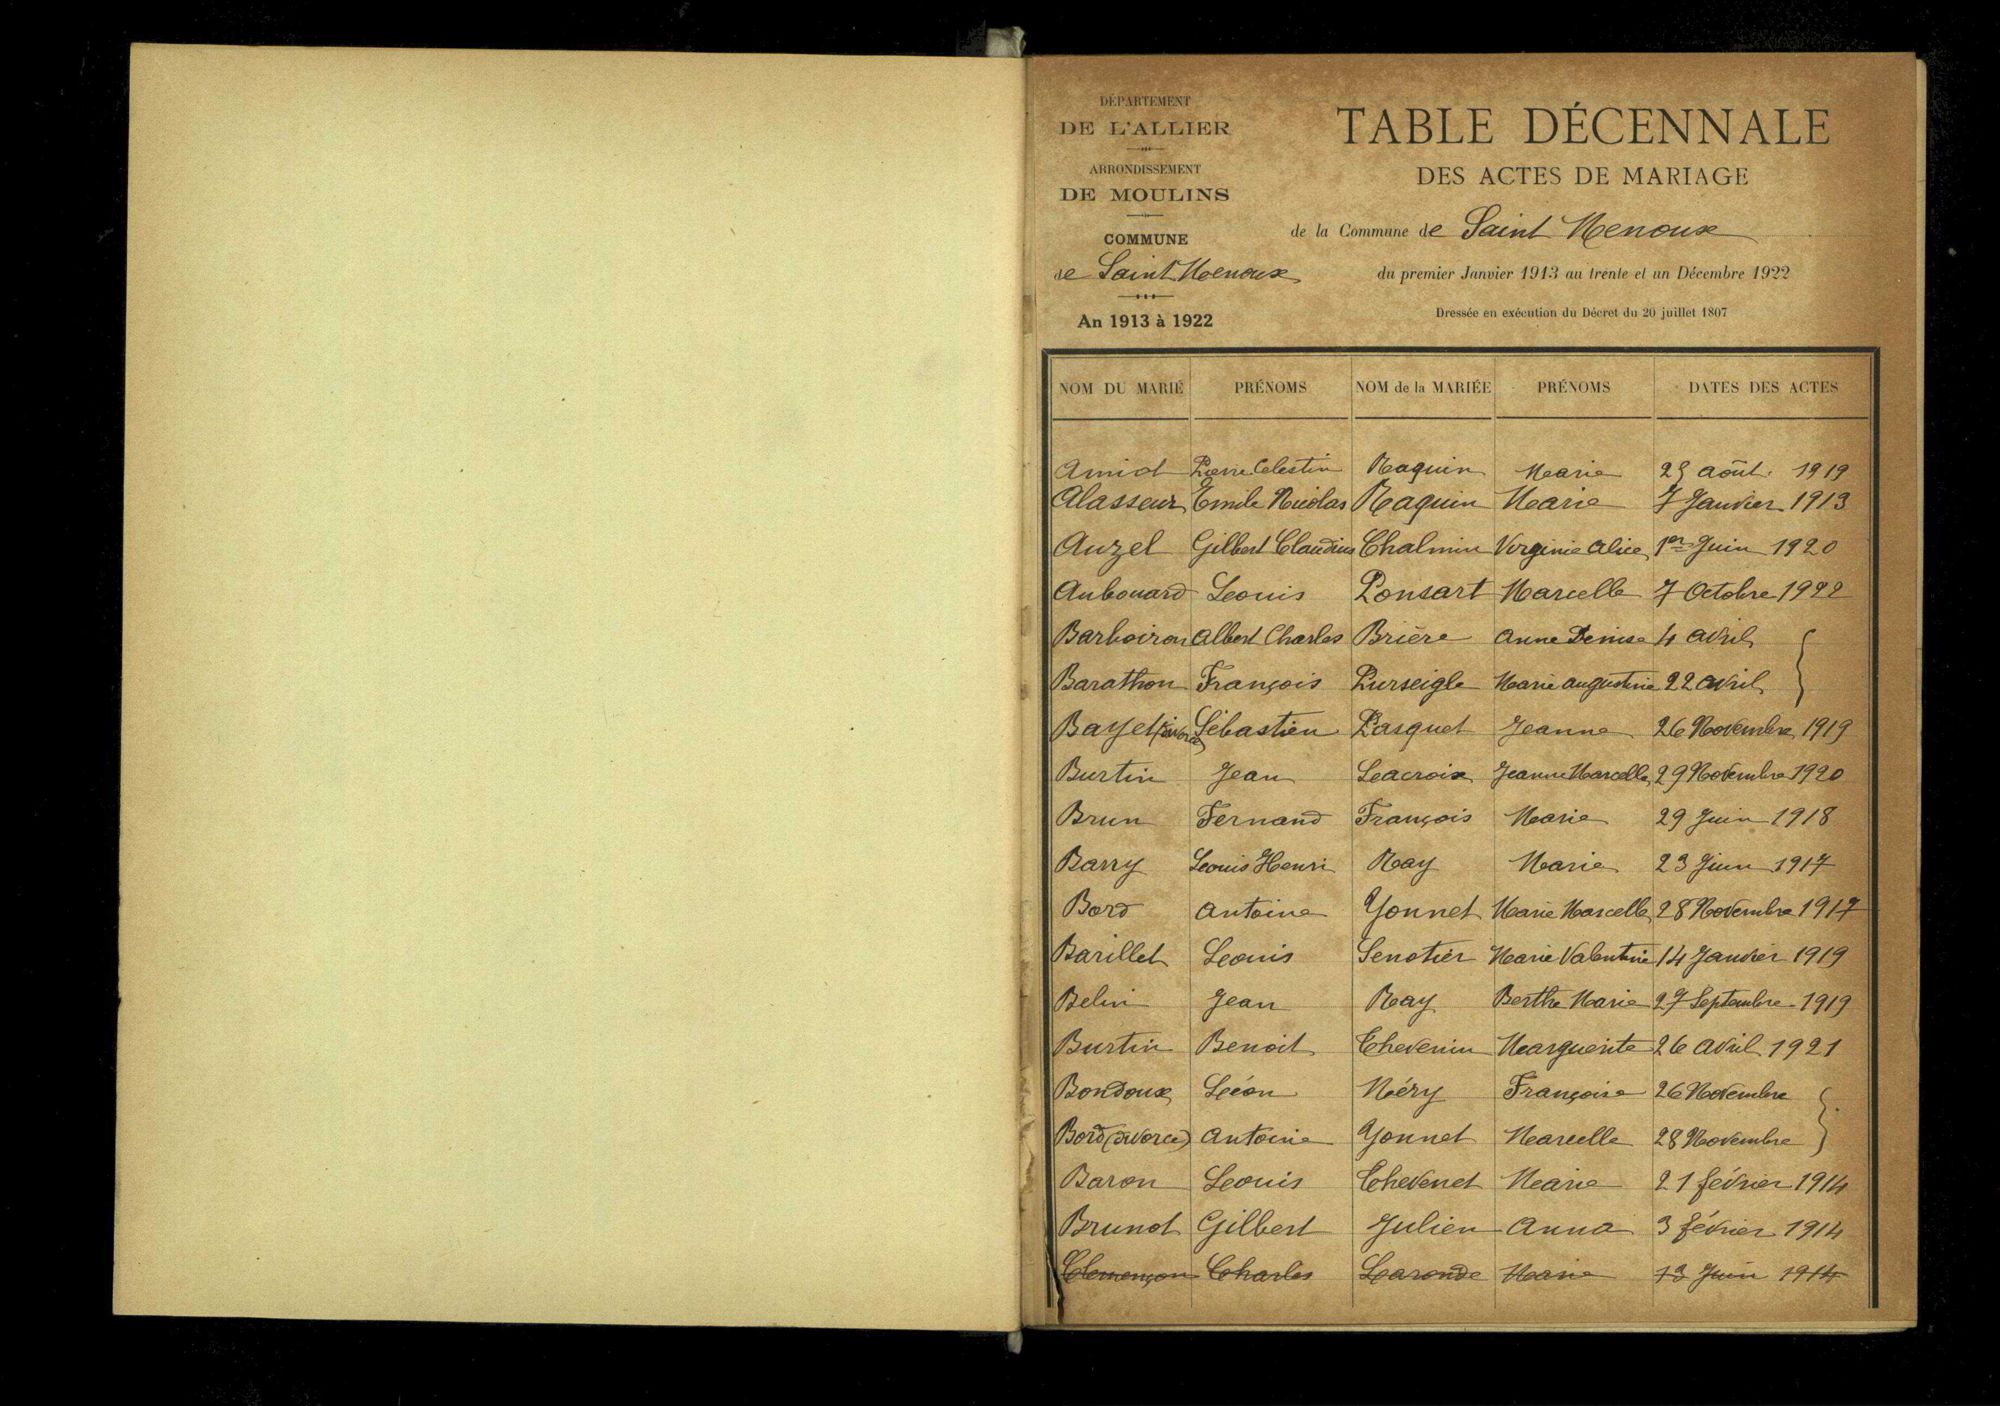 DÉPARTEMENT
DE L'ALLIER
ARRONDISSEMENT
DE MOULINS
COMMUNE
de Saint Menoux
An 1913 à 1922
TABLE DÉCENNALE
DES ACTES DE MARIAGE
de la Commune de Saint Menoux
du premier Janvier 1913 au trente et un Décembre 1922
Dressée en exécution du Décret du 20 juillet 1807
NOM DU MARIÉ PRÉNOMS NOM de la MARIÉE PRÉNOMS DATES DES ACTES
Amiot Pierre Celestin Raquin Marie août 1919
Alasseur Emile Nicolas Raquin Marie 7 Janvier 1913
Auzel Gilbert Claudius Chalmin Virginie Alice 1er Juin 1920
Aubouard Louis Ponsart Marcelle 7 Octobre 1922
Barboiron Albert Charles Brière Anne Denise 4 avril
Barathon François Purseigle Marie Augustine 22 avril
Bayet (divorcé) Sébastien Pasquet Jeanne 26 Novembre 1919
Burtin Jean Lacroix Jeanne Marcelle 29 Novembre 1920
Brun Fernand François Marie 29 Juin 1918
Barry Louis Henri Ray Marie 23 Juin 1917
Bord Antoine Yonnet Marie Marcelle 28 Novembre 1917
Barillet Louis Senotier Marie Valentine 14 Janvier 1919
Belin Jean Ray Berthe Marie 27 Septembre 1919
Burtin Benoit Thevenin Marguerite 26 Avril 1921
Bondoux Léon Méry Françoise 26 Novembre
Bord (divorcé) Antoine Yonnet Marcelle 28 Novembre
Baron Louis Thevenet Marie 21 février 1914
Brunot Gilbert Julien Anna 3 février 1914
Clemençon Charles Laronde Marie 13 Juin 1914